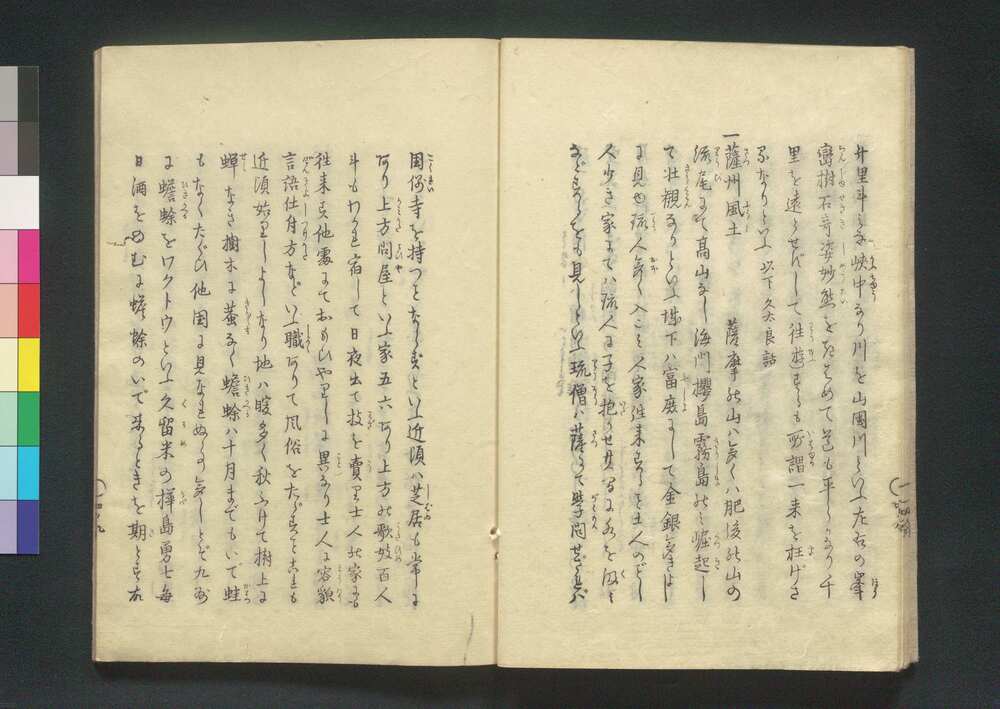 廿里斗も峡中なり川を山国川といふ左右の峯
巒樹石奇姿妙態をきはめて道も平らかなり千
里を遠しとせずして往遊すとも所謂一来を枉げざ
るなりといふ 以下久太良話
一薩州風土 薩摩の山は多くハ肥後の山の
流尾にて高山なし海門櫻島霧島のミ崛起し
て壮観なりといふ城下ハ富庶にして金銀多きよし
に見ゆ琉人多く入こミ人家往来する土人のごとし
人少き家にてハ琉人に子を抱かせ又は水を汲ミ
などするをも見しといふ琉僧ハ薩にて学問せざれバ
国帰寺を持つことならずといふ近頃ハ芝居も常に
あり上方問屋といふ家五六あり上方の歌妓百人
斗もわかれ宿して日夜出て技を賣り士人の家にも
往来す他處にておもひやりしに異なり士人に容貌
言語仕付方などいふ職ありて風俗をたゞすことも
近頃始りしよしなり地ハ暖多く秋ふけて樹上に
蝉なき樹木に蚤なく蟾蜍ハ十月までもいで蛙
もなくたぐひ他国に見なれぬもの多しとぞ九州
に蟾蜍をワクトウといふ久留米の樺島勇七毎
日酒をのむに蟾蜍のいで来るときを期とす故